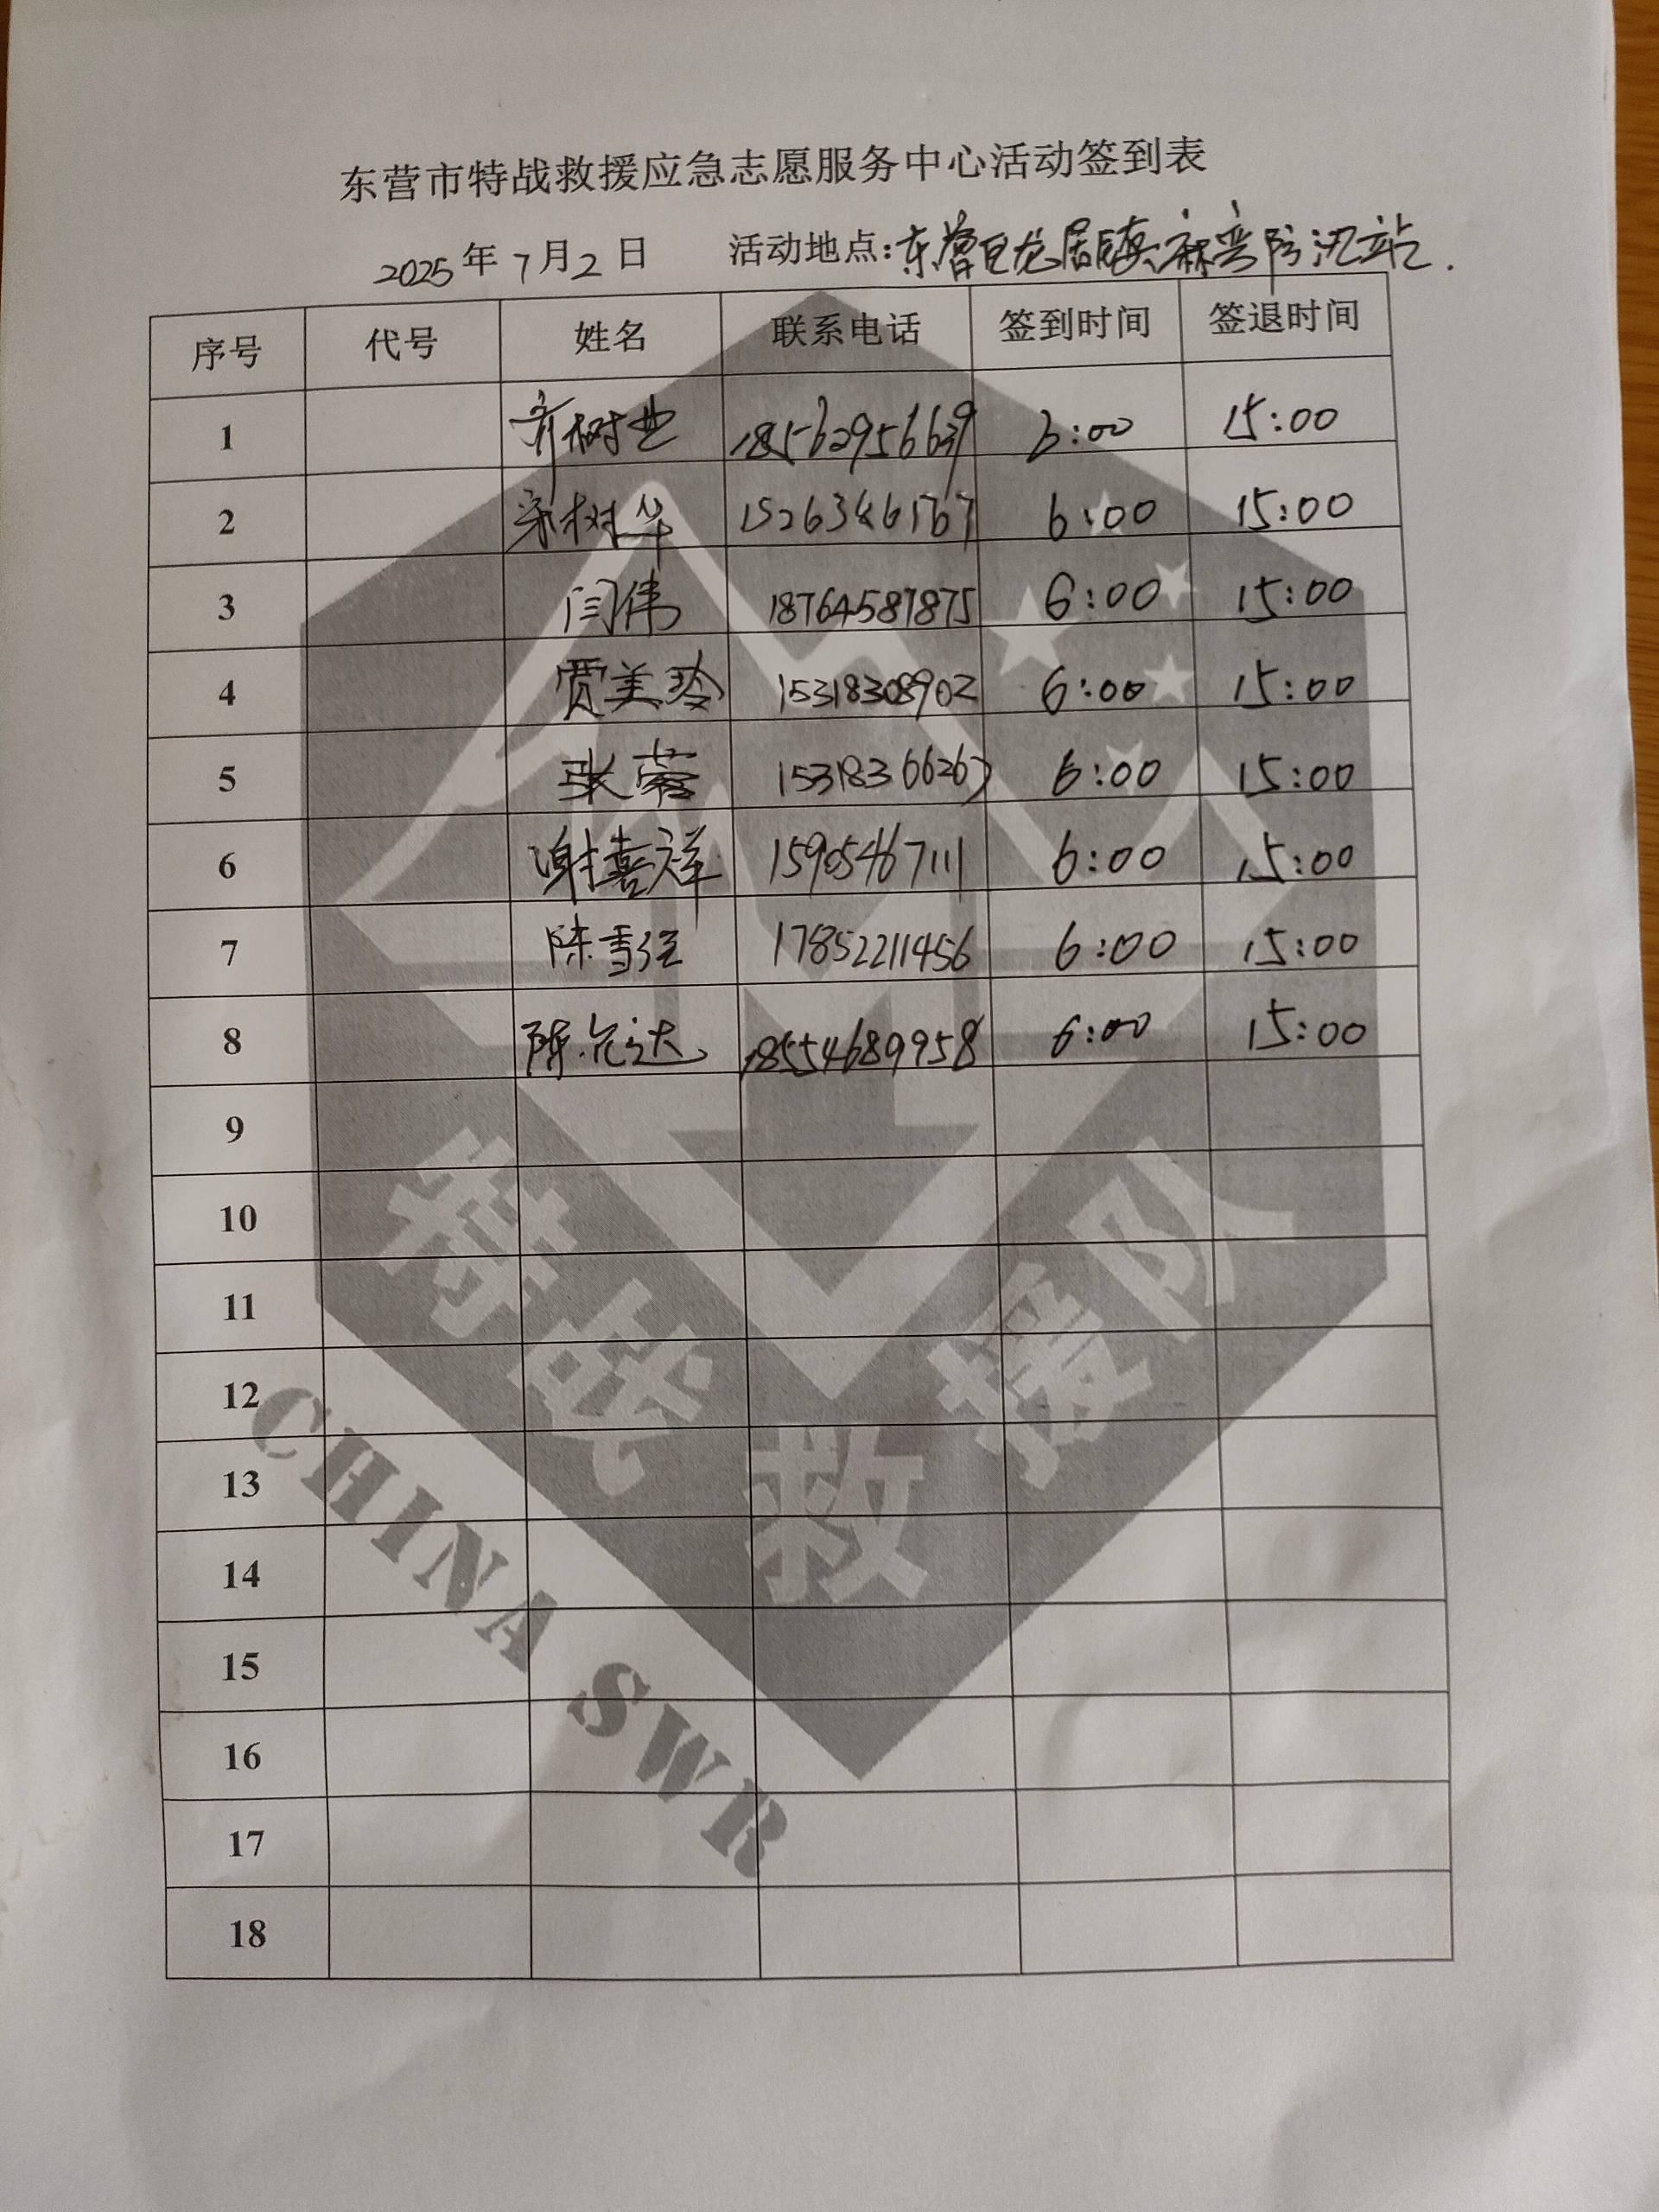 东营市特战救援应急志愿服务中心活动签到表
2025年7月2日 活动地点:东营区龙居镇麻湾防汛站.
序号 代号 姓名 联系电话 签到时间 签退时间
1 齐树业 6:00 15:00
2 宋树华 6:00 15:00
3 闫伟 18764587875 6:00 15:00
4 贾美玲 15318308902 6:00 15:00
5 张蓉 15318366267 6:00 15:00
6 谢喜祥 15905467111 6:00 15:00
7 陈雪 17852211456 6:00 15:00
8 陈 达 18554689958 6:00 15:00
9
10
11
12
13
14
15
16
17
18
特战救援队
CHINA SWR